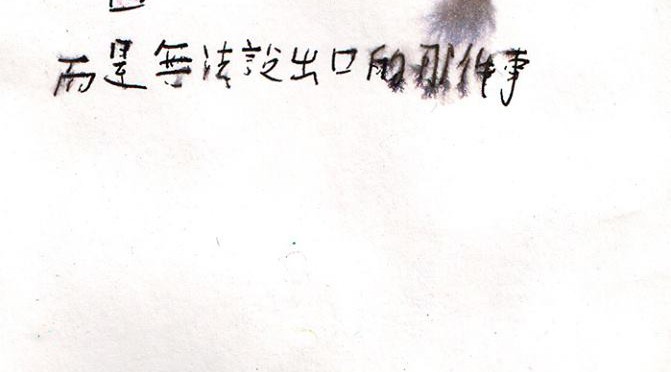 而是無法說出口的那件事